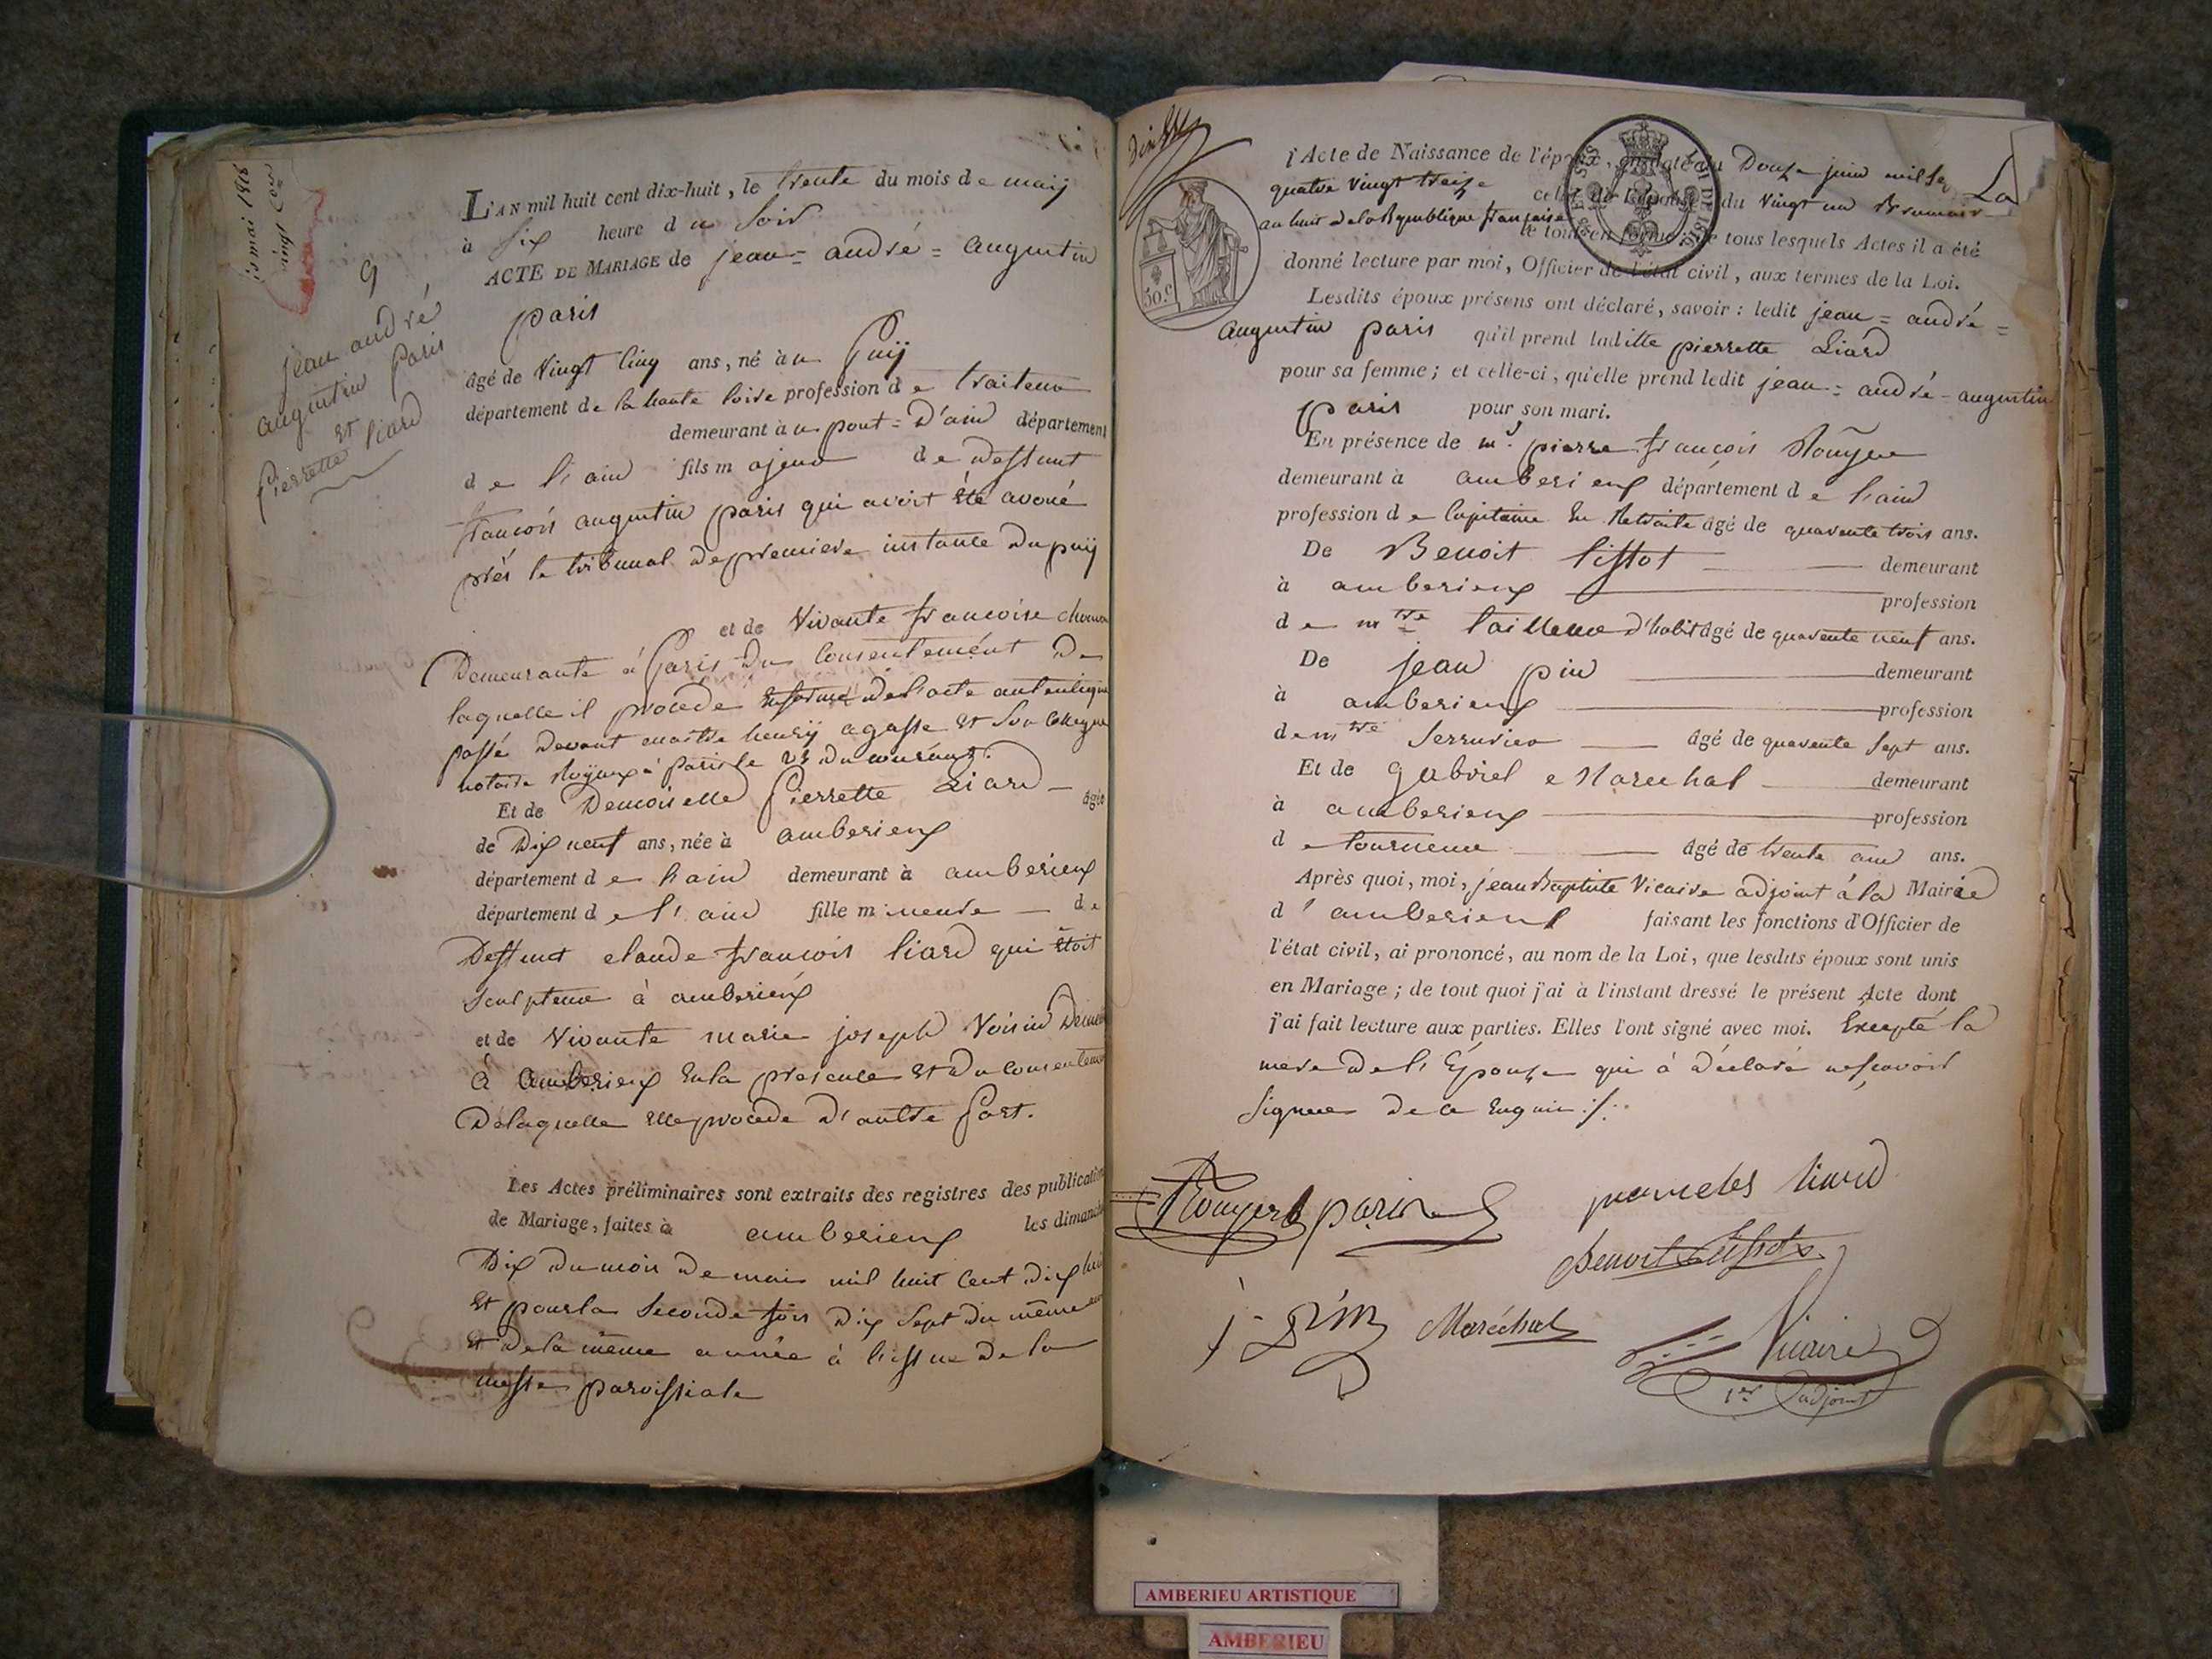 9
jean andré
augustin Paris
et liard
Pierrette
L'AN mil huit cent dix-huit, le trente du mois de maij
à six heure du soir
ACTE DE MARIAGE de jean = andré = augustin
paris
âgé de Vingt Cinq ans, né au Puij
département de la haute loire profession de traiteur
demeurant au pont = D'ain département
de l'ain fils majeur de deffunt
francois augustin paris qui avoit été avoué
près le tribunal de premiere instance du puij
et de Vivante francoise
Demeurante à Paris Du Consentement De
laquelle il procede de l'acte autentique
passé devant maitre henrij agasse et son Collegue
notaire Royaux à paris le 23 du courant.
Et de Demoiselle Pierrette Liard âgée
de Dix neuf ans, née à amberieux
département de l'ain demeurant à amberieux
département de l'ain fille mineure de
Deffunt claude francois liard qui étoit
sculpteur à amberieux
et de Vivante marie joseph Voisin
à amberieux en la presence et du consentement
De laquelle elle procede d'autre part.
Les Actes préliminaires sont extraits des registres des publications
de Mariage, faites à amberieux les dimanches
Dix du mois de mai mil huit cent dix huit
et pour la seconde fois dix sept du même
et de la même année à l'issue de la
messe paroissiale
l'Acte de Naissance de l'époux, en date du Douze juin mil sept
quatre vingt treize celui de l'épouse du vingt un Brumaire
an huit de la Republique francaise
le tout en forme; de tous lesquels Actes il a été
donné lecture par moi, Officier de l'état civil, aux termes de la Loi.
50.c
LOI DE 1816
Lesdits époux présens ont déclaré, savoir: ledit jean = andré =
augustin paris qu'il prend laditte pierrette Liard
pour sa femme; et celle-ci, qu'elle prend ledit jean = andré - augustin
Paris pour son mari.
En présence de mr. pierre francois Rouyer
demeurant à amberieux département de l'ain
profession de Capitaine en Retraite âgé de quarente trois ans.
De Benoit lissot demeurant
à amberieux profession
de mtre tailleur d'habit âgé de quarente neuf ans.
De jean pin demeurant
à amberieux profession
de mtre serrurier âgé de quarente sept ans.
Et de gabriel Marechal demeurant
à amberieux profession
de tourneur âgé de trente ans.
Après quoi, moi, jean Baptiste Vicaire adjoint à la Mairie
d'amberieux faisant les fonctions d'Officier de
l'état civil, ai prononcé, au nom de la Loi, que lesdits époux sont unis
en Mariage; de tout quoi j'ai à l'instant dressé le présent Acte dont
j'ai fait lecture aux parties. Elles l'ont signé avec moi. Excepté la
mere de l'Epouse qui à déclaré ne scavoir
signer de ce enquise
Rouyer paris liard
Benoit Lissot
j. pin Maréchal Vicaire
1er adjoint
AMBERIEU ARTISTIQUE
AMBERIEU